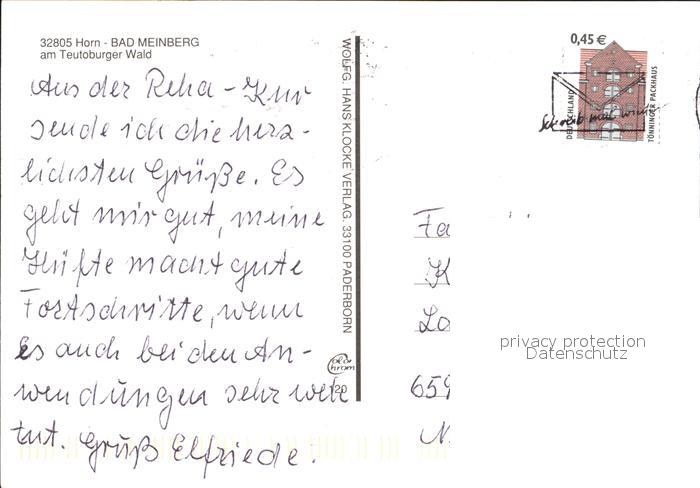 32805 Horn - BAD MEINBERG
am Teutoburger Wald
Aus der Reha-Kur
sende ich die herz-
lichsten Grüße. Es
geht mir gut, meine
Hüfte macht gute
Fortschritte, wenn
es auch bei den An-
wendungen sehr wehe
tut. Gruß Elfriede.
WOLFG. HANS KLOCKE VERLAG, 33100 PADERBORN
color
chrom
120
0,45 €
DEUTSCHLAND
TÖNNINGER PACKHAUS
Schreib mal wieder
Fa
K
Lo
659
N.
privacy protection
Datenschutz